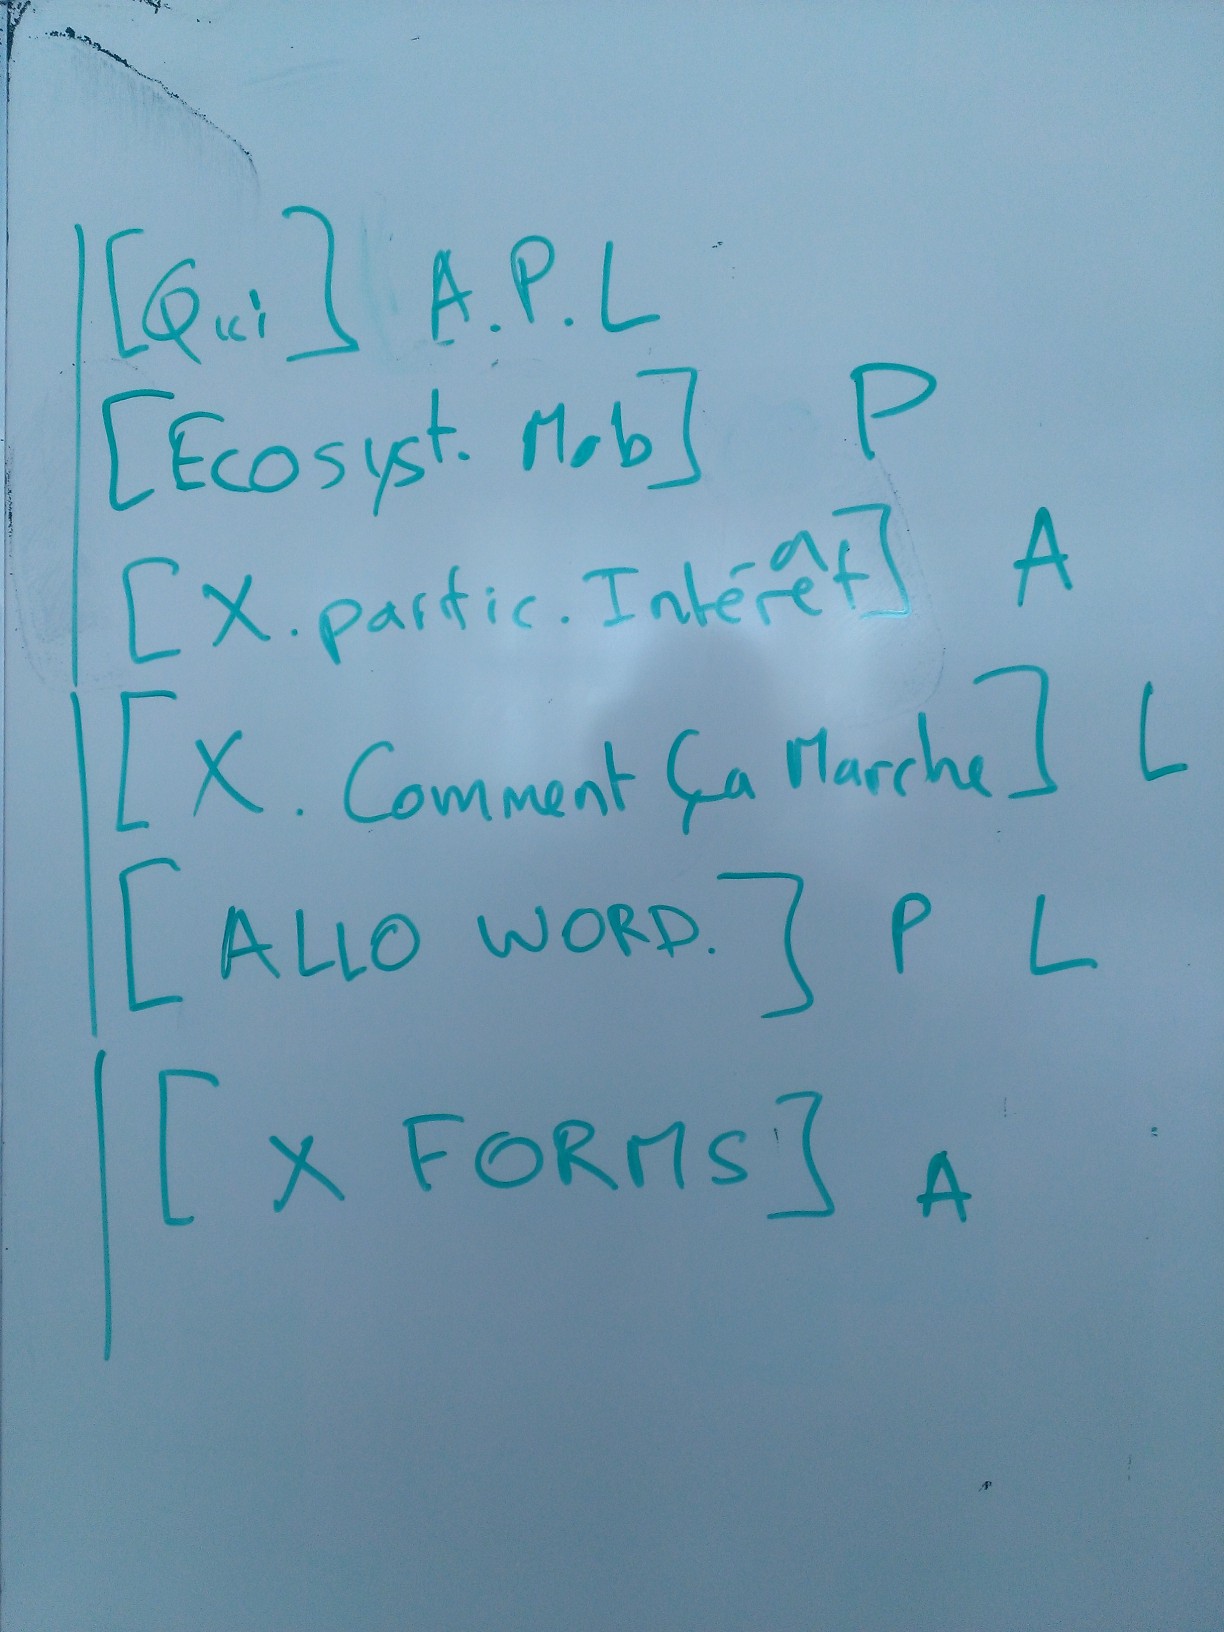 [Qui] A.P.L
[Ecosyst. Mob] P
[X. partic. Intérêt] A
[X. Comment Ça Marche] L
[ALLO WORD.] P L
[X FORMS] A